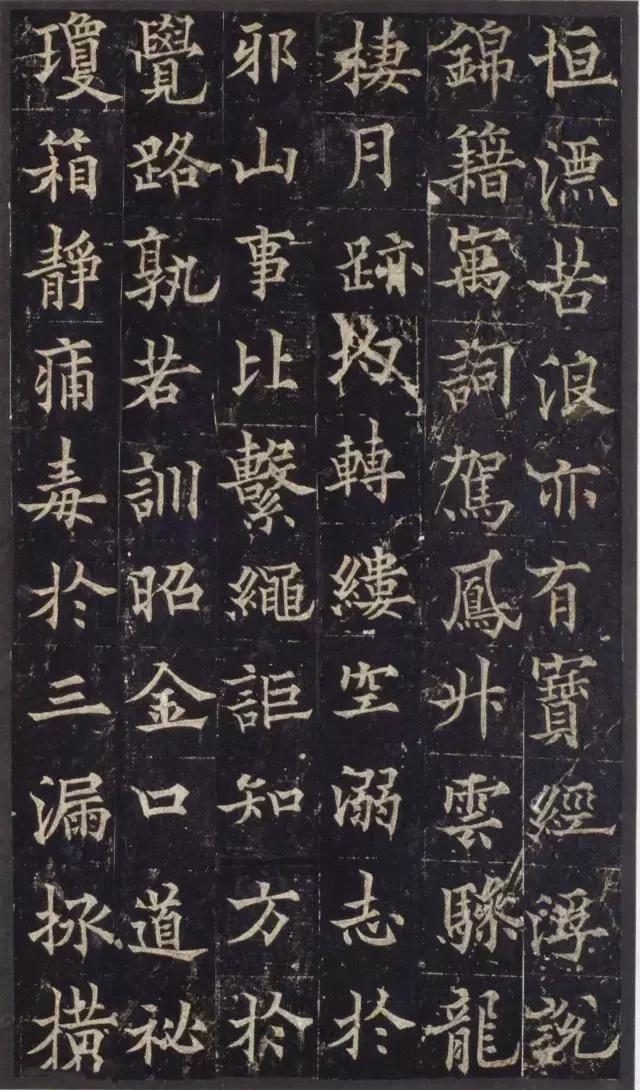 恒漂苦浪亦有寶經浮說
錦籍寓詞駕鳳升雲驂龍
棲月跡均轉縷空溺志於
邪山事比繫繩詎知方於
覺路孰若訓昭金口道祕
瓊箱靜痡毒於三漏拯橫